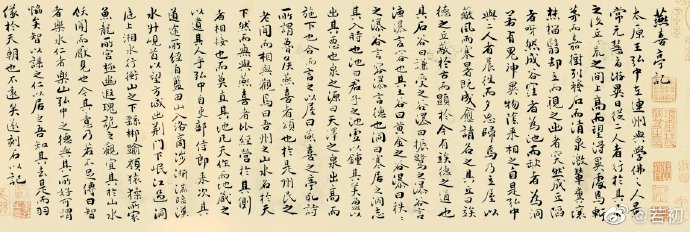 燕喜亭記
太原王弘中在連州與學佛之人景
常元慧游異日從二人者行於其居
之後丘荒之間上高而望得異處焉斬
茅而嘉樹列發石而清泉激輦糞壤
燔椔翳却立而視之出者突然成丘陷
者呀然成谷窪者為池而缺者為洞
若有鬼神異物陰來相之自是弘中
與二人者晨往而夕忘歸焉乃立屋以
避風雨寒暑既成愈請名之其丘曰俟
德之丘蔽於古而顯於今有俟德之道也
其石谷曰謙受之谷瀑曰振鷺之瀑谷言
德瀑言容也其土谷曰黃金之谷瀑曰秩秩
之瀑谷言容瀑言德也洞曰寒居之洞志
其入時也池曰君子之池虛以鍾其美盈
以出其惡也泉之源曰天澤之泉出高而
施下也合而言之以屋曰燕喜之亭取詩
所謂魯侯燕喜者頌也於是州民之
老聞而相與觀焉曰吾州之山水名於天
下然而無與燕喜者比經營於其側
者相接也而莫直其地凡天作而地藏之
以遺其人乎弘中自吏部侍郎貶秩次其
道途所經自藍田入商洛涉淅湍臨漢
水升峴首以望方城出荊門下岷江過洞
庭上湘水行衡山之下繇郴踰嶺猿狖所家
魚龍所宮極幽遐瑰詭之觀宜其於山水
飫聞而厭見也今其意乃若不足傳曰智
者樂水仁者樂山弘中之德與其所好可謂
協矣智以謀之仁以居之吾知其去是而羽
儀於天朝也不遠矣遂刻石以記
@若初